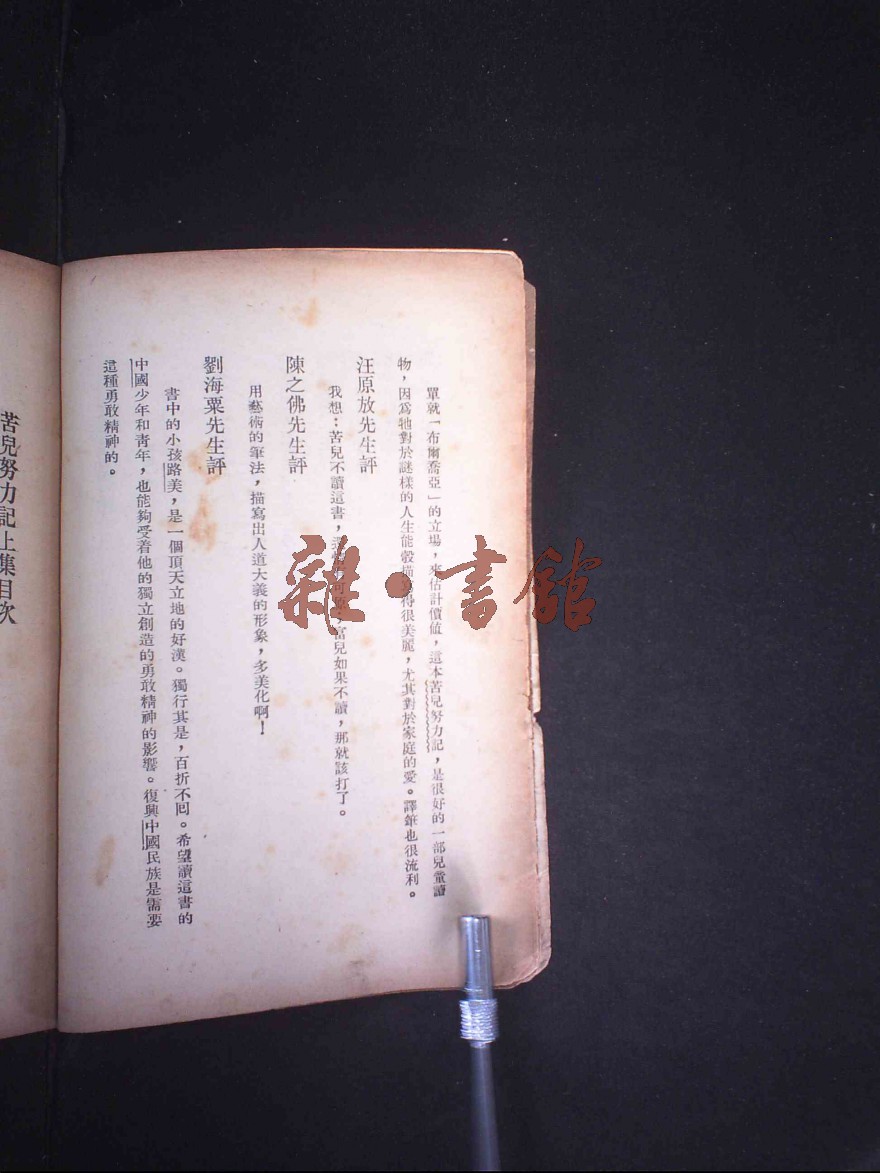 單就「布爾喬亞」的立場，來估計價値，這本苦兒努力記，是很好的一部兒童讀
物，因爲牠對於謎樣的人生能彀描寫得很美麗，尤其對於家庭的愛。譯筆也很流利。
汪原放先生評
我想：苦兒不讀這書，可，富兒如果不讀，那就該打了。
陳之佛先生評
用藝術的筆法，描寫出人道大義的形象，多美化啊！
劉海粟先生評
書中的小孩路美，是一個頂天立地的好漢。獨行其是，百折不囘。希望讀這書的
中國少年和青年，也能夠受着他的獨立創造的勇敢精神的影響。復興中國民族是需要
這種勇敢精神的。
苦兒努力記上集目次
雜·書館